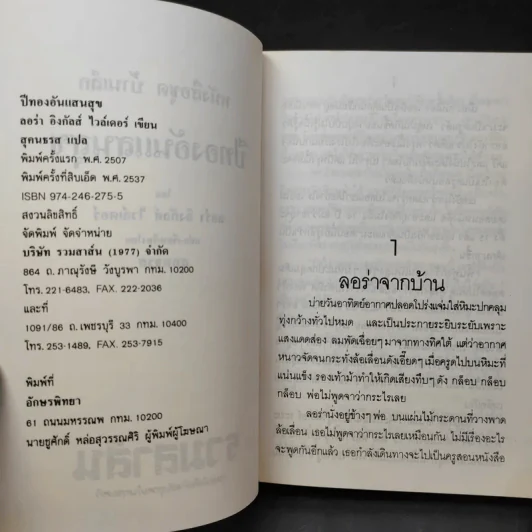 ปีทองอันแสนสุข
ลอร่า อิงกัลส์ ไวล์เดอร์ เขียน
สุคนธรส แปล
พิมพ์ครั้งแรก พ.ศ. 2507
พิมพ์ครั้งที่สิบเอ็ด พ.ศ. 2537
ISBN 974-246-275-5
สงวนลิขสิทธิ์
จัดพิมพ์ จัดจำหน่าย
บริษัท รวมสาส์น (1977) จำกัด
864 ถ.ภาณุรังษี วังบูรพา กทม. 10200
โทร. 221-6483, FAX. 222-2036
และที่
1091/86 ถ.เพชรบุรี 33 กทม. 10400
โทร. 253-1489, FAX. 253-7915
พิมพ์ที่
อักษรพิทยา
61 ถนนมหรรณพ กทม. 10200
นายชูศักดิ์ หล่อสุวรรณศิริ ผู้พิมพ์ผู้โฆษณา
1
ลอร่าจากบ้าน
บ่ายวันอาทิตย์อากาศปลอดโปร่งแจ่มใสหิมะปกคลุม
ทุ่งกว้างทั่วไปหมด และเป็นประกายระยิบระยับเพราะ
แสงแดดส่อง ลมพัดเฉื่อยๆ มาจากทางทิศใต้ แต่ว่าอากาศ
หนาวจัดจนกระทั่งล้อเลื่อนดังเอี๊ยดๆ เมื่อครูดไปบนหิมะที่
แน่นแข็ง รองเท้าม้าทำให้เกิดเสียงทึบๆ ดัง กล็อบ กล็อบ
กล็อบ พ่อไม่พูดจาว่ากระไรเลย
ลอร่านั่งอยู่ข้างๆ พ่อ บนแผ่นไม้กระดานที่วางพาด
ล้อเลื่อน เธอไม่พูดจาว่ากระไรเลยเหมือนกัน ไม่มีเรื่องอะไร
จะพูดกันอีกแล้ว เธอกำลังเดินทางจะไปเป็นครูสอนหนังสือ